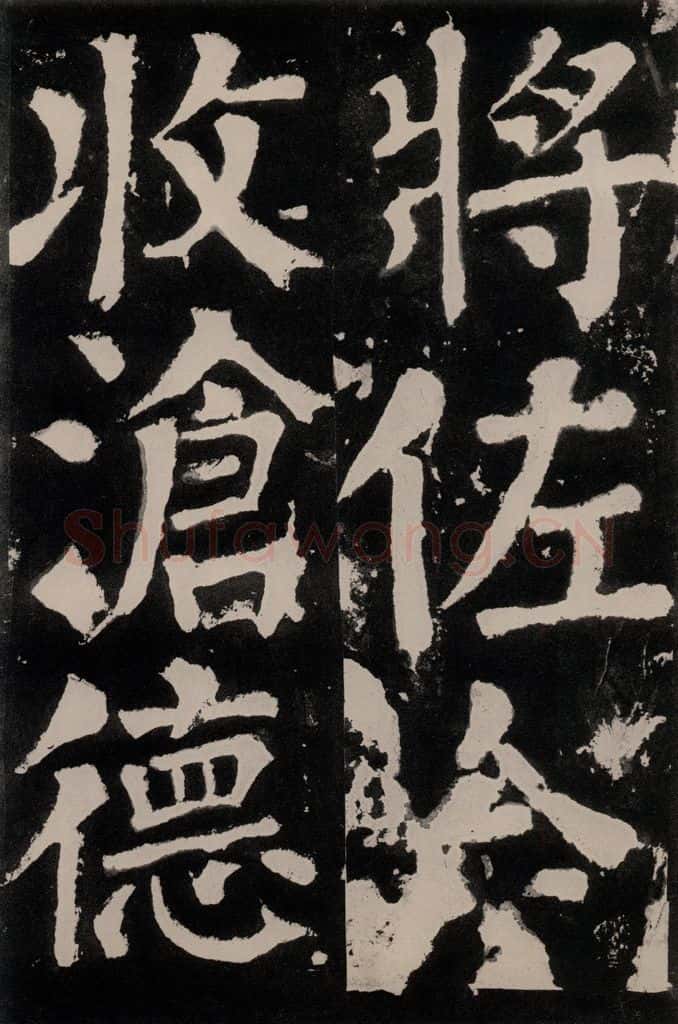 將佐
收滄德
Shufawang.CN